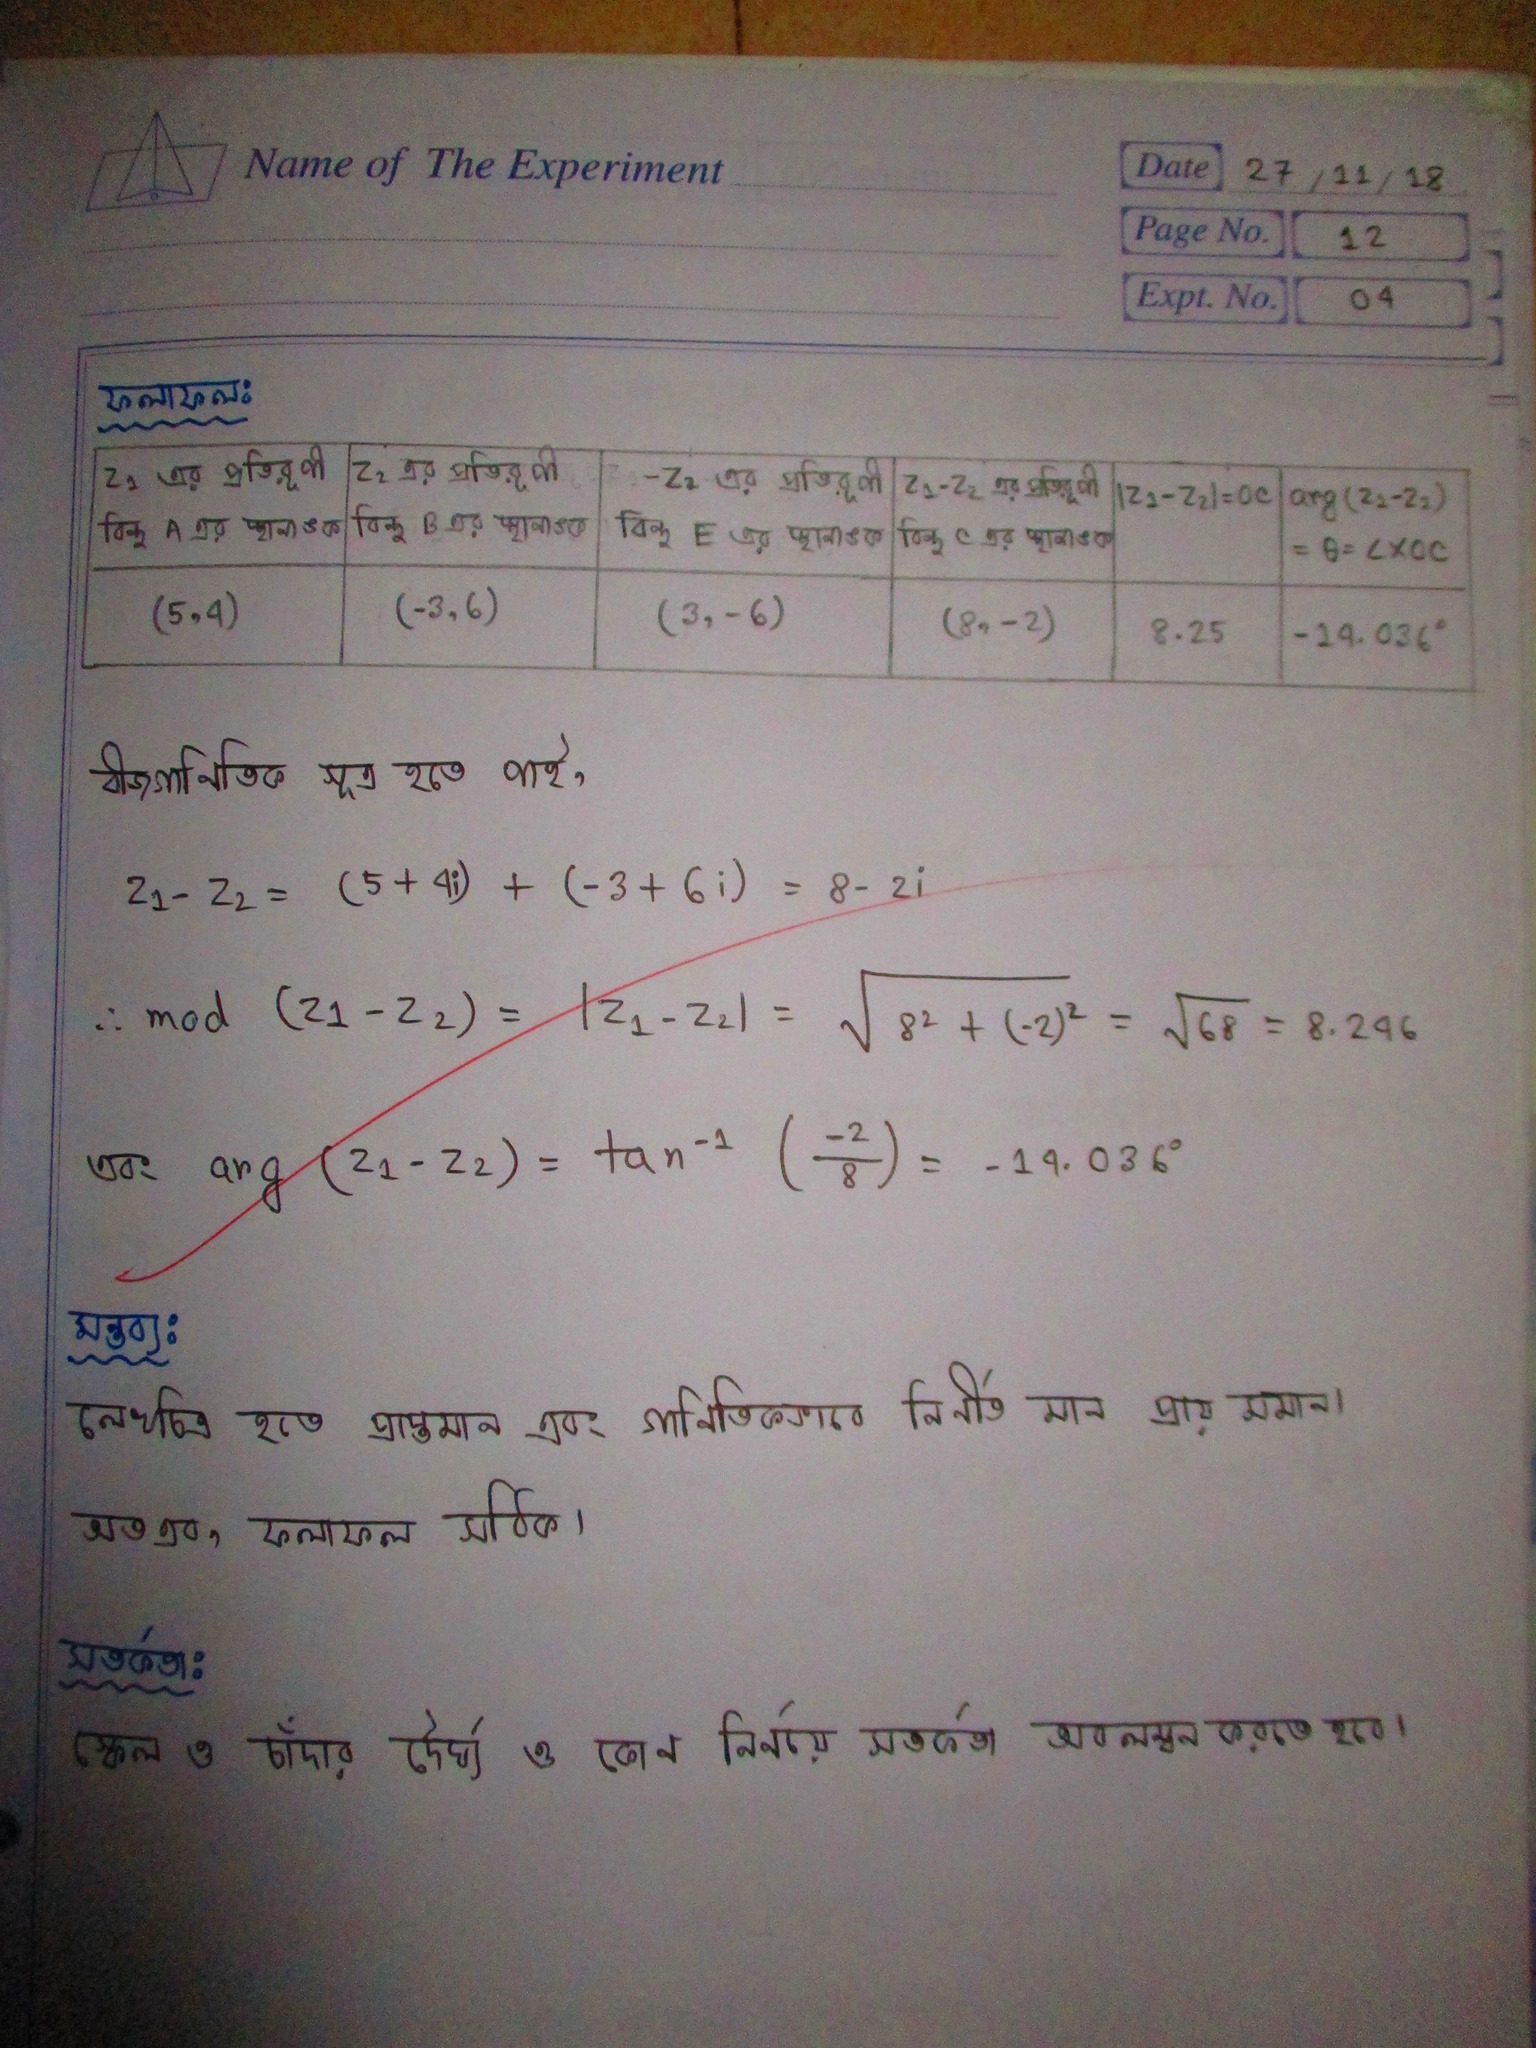 Name of The Experiment
Date 27/11/18
Page No. 12
Expt. No. 04
ফলাফলঃ
Z₁ এর প্রতিরূপী বিন্দু A এর স্থানাঙ্ক | Z₂ এর প্রতিরূপী বিন্দু B এর স্থানাঙ্ক | -Z₂ এর প্রতিরূপী বিন্দু E এর স্থানাঙ্ক | Z₁-Z₂ এর প্রতিরূপী বিন্দু C এর স্থানাঙ্ক | |Z₁-Z₂|=OC | arg(Z₁-Z₂) = θ= ∠XOC
(5,4) | (-3,6) | (3,-6) | (8,-2) | 8.25 | -14.036°
বীজগানিতিক সূত্র হতে পাই,
Z₁-Z₂ = (5+4i) + (-3+6i) = 8-2i
∴ mod (Z₁-Z₂) = |Z₁-Z₂| = √8²+(-2)² = √68 = 8.246
এবং arg (Z₁-Z₂) = tan⁻¹ (-2/8) = -14.036°
মন্তব্যঃ
লেখচিত্র হতে প্রাপ্তমান এবং গানিতিকভাবে নির্নীত মান প্রায় সমান।
অতএব, ফলাফল সঠিক।
সতর্কতাঃ
স্কেল ও চাঁদার দৈর্ঘ্য ও কোন নির্নয়ে সতর্কতা অবলম্বন করতে হবে।